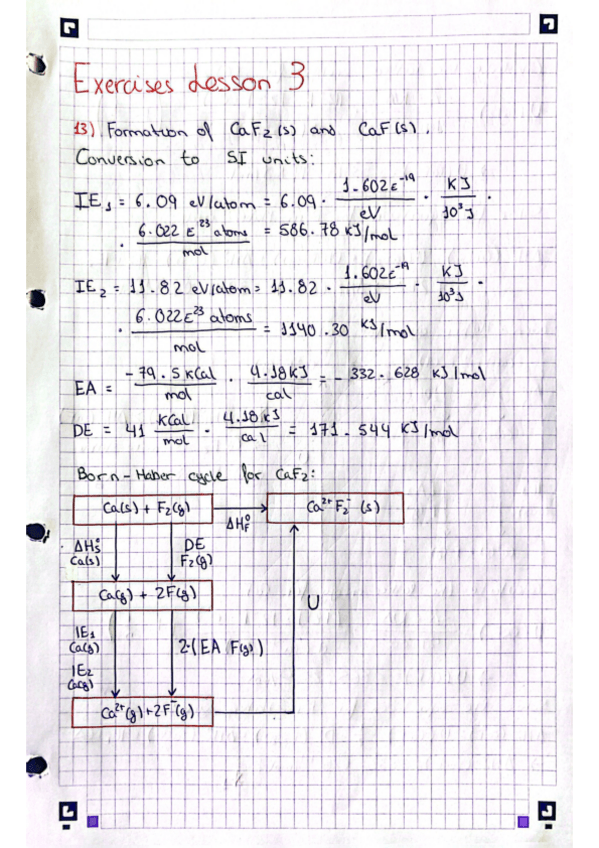 Exercises Lesson 3
13) Formation of CaF₂(s) and CaF(s).
Conversion to SI units:
IE₁ = 6.09 eV/atom = 6.09 · 1.602E⁻¹⁹/eV · KJ/10³J ·
· 6.022E²³ atoms/mol = 586.78 KJ/mol
IE₂ = 11.82 eV/atom = 11.82 · 1.602E⁻¹⁹/eV · KJ/10³J ·
· 6.022E²³ atoms/mol = 1140.30 KJ/mol
EA = -79.5 KCal/mol · 4.18KJ/cal = -332.628 KJ/mol
DE = 41 KCal/mol · 4.18KJ/cal = 171.544 KJ/mol
Born-Haber cycle for CaF₂:
Ca(s) + F₂(g)
ΔH°F
Ca²⁺F₂⁻ (s)
ΔH°S
Ca(s)
DE
F₂(g)
Ca(g) + 2F(g)
U
IE₁
Ca(g)
IE₂
Ca(g)
2·(EA F(g))
Ca²⁺(g)+2F⁻(g)